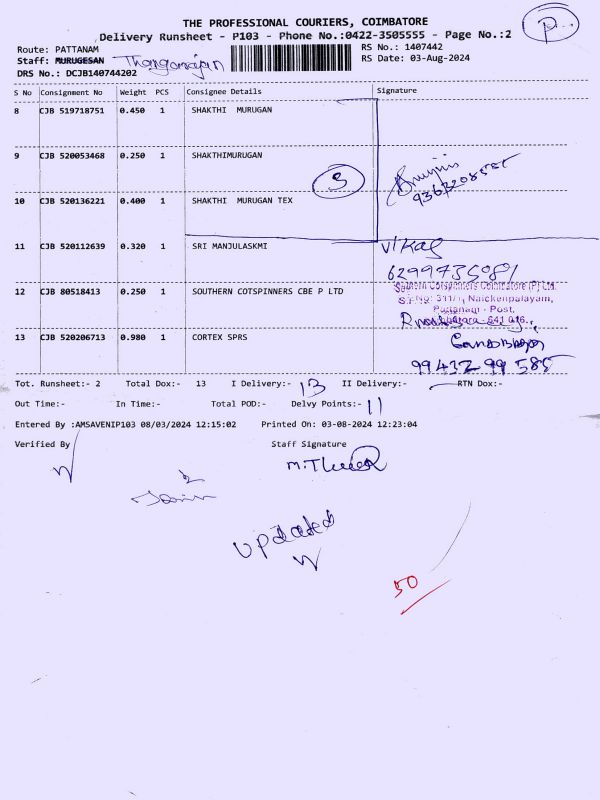 THE PROFESSIONAL COURIERS, COIMBATORE
Delivery Runsheet - P103 - Phone No.:0422-3505555 - Page No.:2
P
Route: PATTANAM
RS No.: 1407442
Staff: MURUGESAN Thangarajan
RS Date: 03-Aug-2024
DRS No.: DCJB140744202
S No Consignment No Weight PCS Consignee Details Signature
8 CJB 519718751 0.450 1 SHAKTHI MURUGAN
9 CJB 520053468 0.250 1 SHAKTHIMURUGAN
3
10 CJB 520136221 0.400 1 SHAKTHI MURUGAN TEX
11 CJB 520112639 0.320 1 SRI MANJULASKMI
Vikas
6299735081
12 CJB 80518413 0.250 1 SOUTHERN COTSPINNERS CBE P LTD
Southern Cotspinners Coimbatore (P) Ltd.
S.F.No: 311/1, Naickenpalayam,
Pattanam - Post,
641 016.
13 CJB 520206713 0.980 1 CORTEX SPRS
99432 99 585
Tot. Runsheet:- 2 Total Dox:- 13 I Delivery:- 13 II Delivery:- RTN Dox:-
Out Time:- In Time:- Total POD:- Delvy Points:- 11
Entered By :AMSAVENIP103 08/03/2024 12:15:02 Printed On: 03-08-2024 12:23:04
Verified By Staff Signature
updated
50